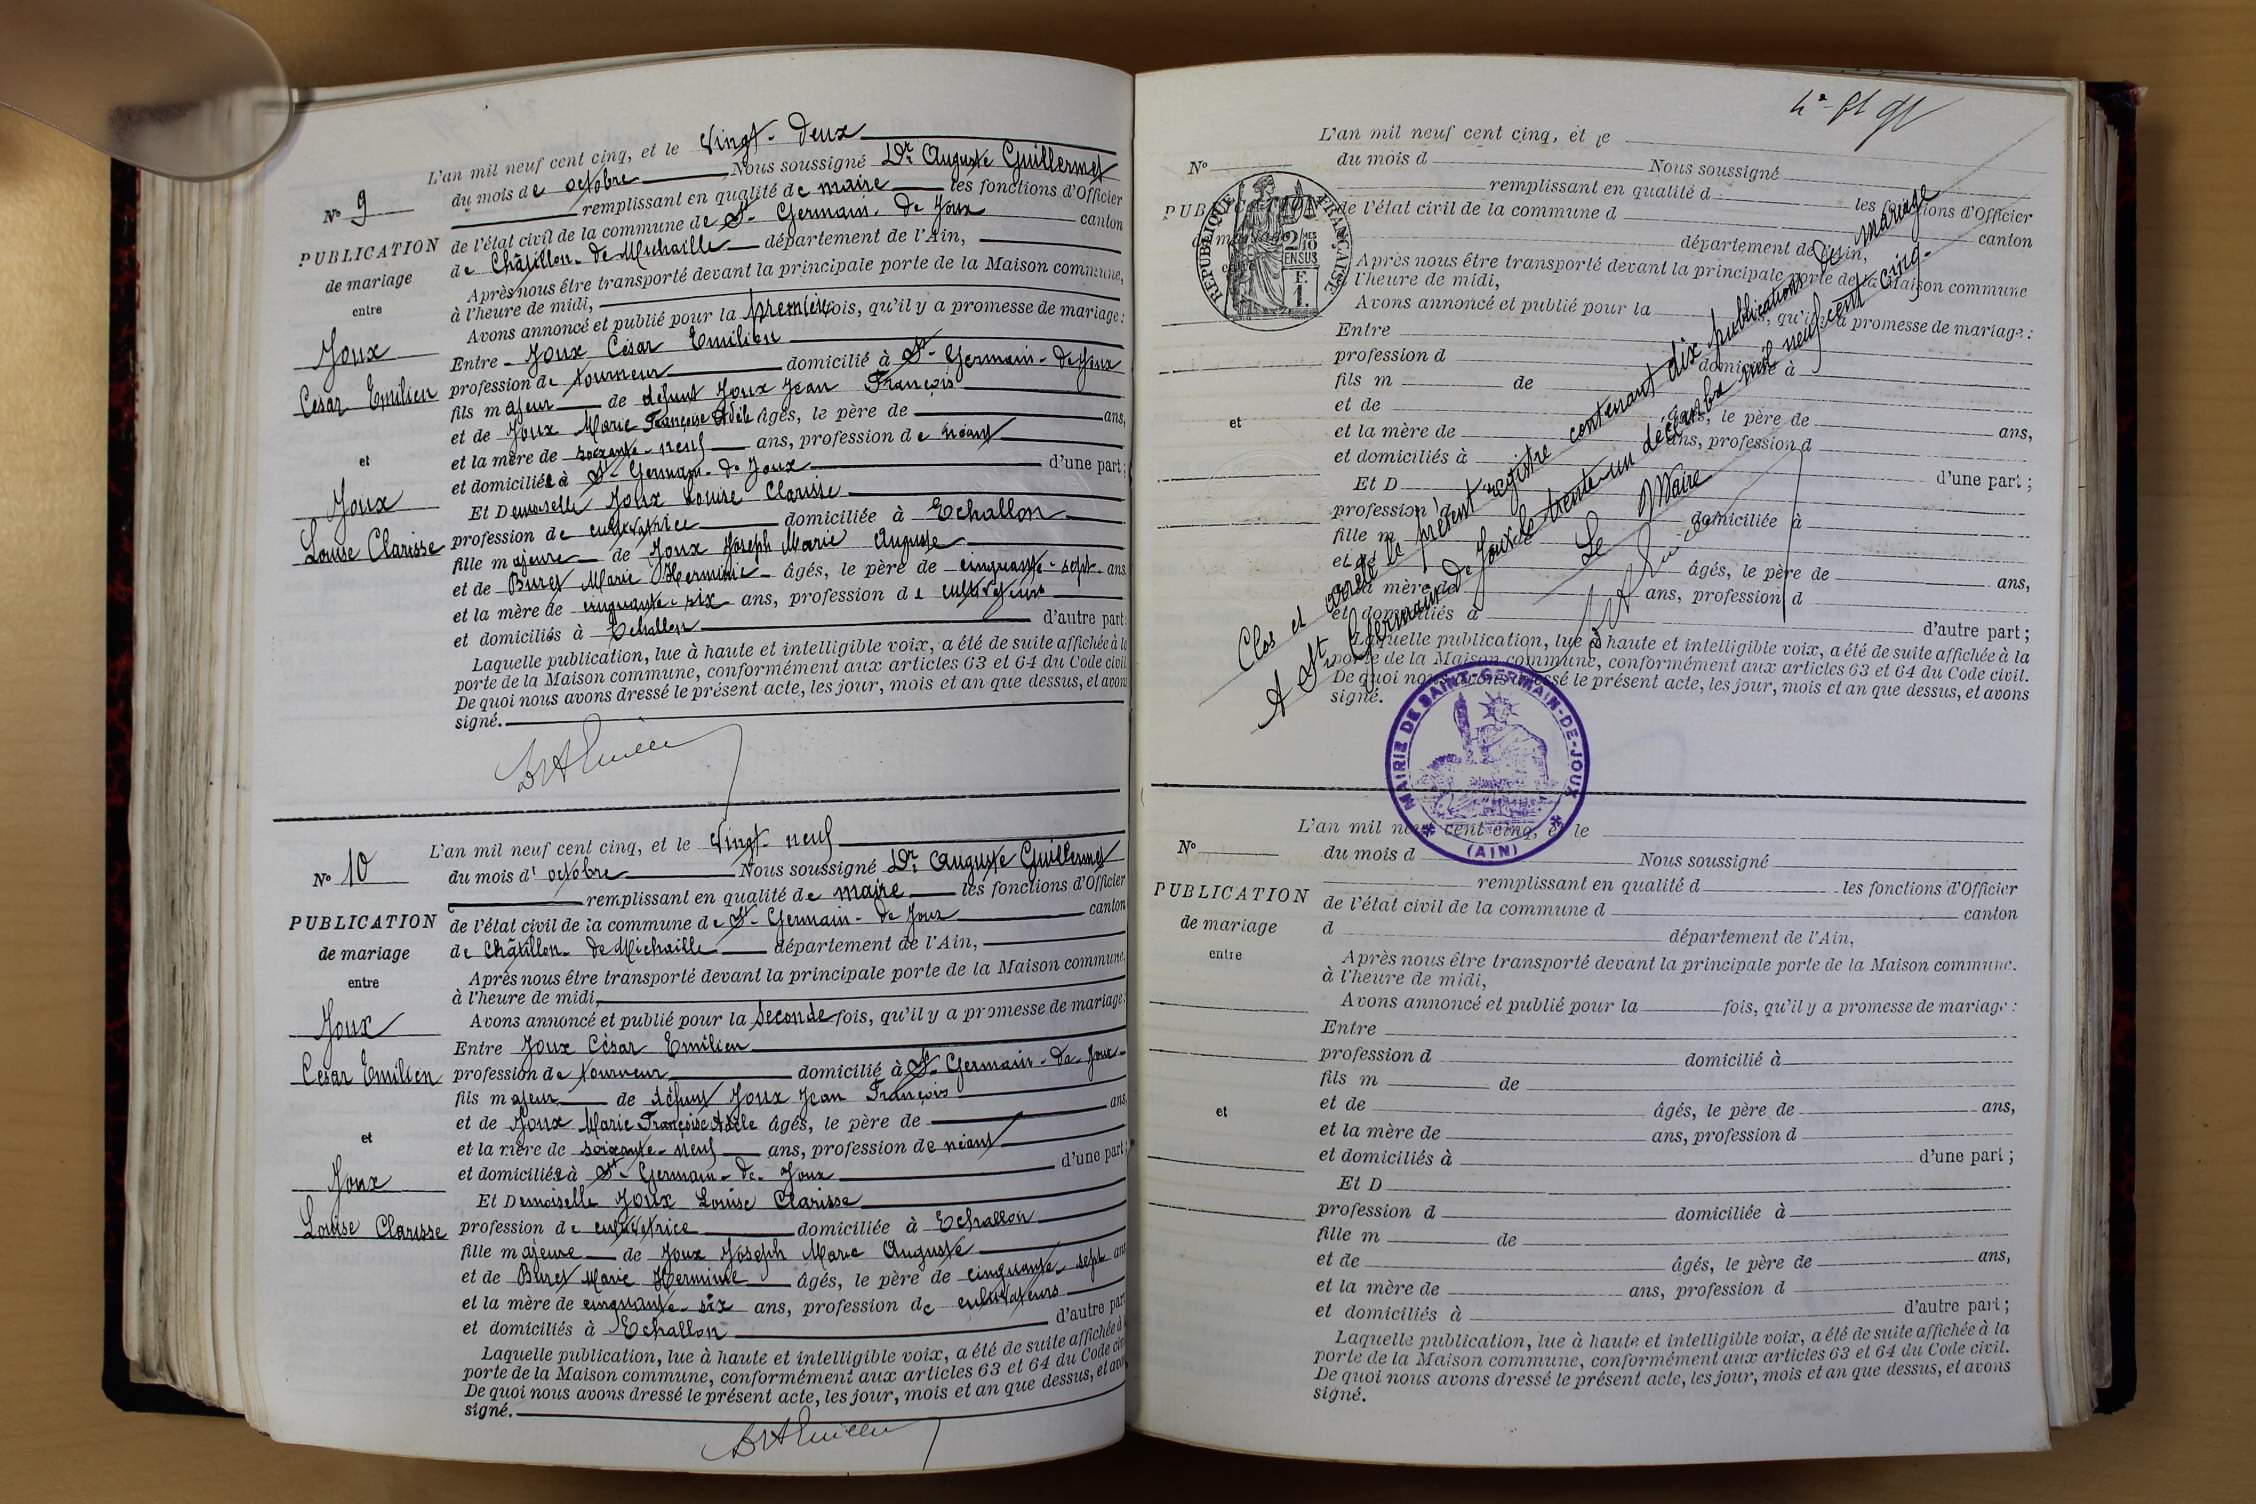 L'an mil neuf cent cinq, et le Vingt-deux
du mois de octobre Nous soussigné Dr. Auguste Guillermet
remplissant en qualité de maire les fonctions d'Officier
de l'état civil de la commune de St-Germain-de Joux canton
de Châtillon-de Michaille département de l'Ain,
Après nous être transporté devant la principale porte de la Maison commune,
à l'heure de midi,
Avons annoncé et publié pour la première fois, qu'il y a promesse de mariage :
Entre Joux César Emilien
profession de tourneur domicilié à St-Germain-de Joux
fils majeur de défunt Joux Jean François
et de Joux Marie Françoise Adèle âgés, le père de ans,
et la mère de soixante-neuf ans, profession de néant
et domiciliée à St-Germain-de Joux d'une part ;
Et Demoiselle Joux Louise Clarisse
profession de cultivatrice domiciliée à Echallon
fille majeure de Joux Joseph Marie Auguste
et de Buret Marie Hermine âgés, le père de cinquante-sept ans
et la mère de cinquante-six ans, profession de cultivateurs
et domiciliés à Echallon d'autre part
Laquelle publication, lue à haute et intelligible voix, a été de suite affichée à la
porte de la Maison commune, conformément aux articles 63 et 64 du Code civil
De quoi nous avons dressé le présent acte, les jour, mois et an que dessus, et avons
signé.
N° 9
PUBLICATION
de mariage
entre
Joux
César Emilien
et
Joux
Louise Clarisse
L'an mil neuf cent cinq, et le Vingt-neuf
du mois d'octobre Nous soussigné Dr. Auguste Guillermet
remplissant en qualité de maire les fonctions d'Officier
de l'état civil de la commune de St-Germain-de Joux canton
de Châtillon-de Michaille département de l'Ain,
Après nous être transporté devant la principale porte de la Maison commune,
à l'heure de midi,
Avons annoncé et publié pour la seconde fois, qu'il y a promesse de mariage :
Entre Joux César Emilien
profession de tourneur domicilié à St-Germain-de-Joux
fils majeur de défunt Joux Jean François
et de Joux Marie Françoise Adèle âgés, le père de ans,
et la mère de soixante-neuf ans, profession de néant
et domiciliée à St-Germain-de-Joux d'une part ;
Et Demoiselle Joux Louise Clarisse
profession de cultivatrice domiciliée à Echallon
fille majeure de Joux Joseph Marie Auguste
et de Buret Marie Hermine âgés, le père de cinquante-sept ans
et la mère de cinquante-six ans, profession de cultivateurs
et domiciliés à Echallon d'autre part
Laquelle publication, lue à haute et intelligible voix, a été de suite affichée à
porte de la Maison commune, conformément aux articles 63 et 64 du Code civ
De quoi nous avons dressé le présent acte, les jour, mois et an que dessus, et avo
signé.
N° 10
PUBLICATION
de mariage
entre
Joux
César Emilien
et
Joux
Louise Clarisse
L'an mil neuf cent cinq, et le
du mois d Nous soussigné
remplissant en qualité d les fonctions d'Officier
de l'état civil de la commune d canton
département de l'Ain,
Après nous être transporté devant la principale porte de la Maison commune
à l'heure de midi,
Avons annoncé et publié pour la fois, qu'il y a promesse de mariage :
Entre
profession d domicilié à
fils m de
et de âgés, le père de ans,
et la mère de ans, profession d
et domiciliés à d'une part ;
Et D
profession d domiciliée à
fille m
et de âgés, le père de ans,
et la mère de ans, profession d
et domiciliés à d'autre part ;
Laquelle publication, lue à haute et intelligible voix, a été de suite affichée à la
porte de la Maison commune, conformément aux articles 63 et 64 du Code civil.
De quoi nous avons dressé le présent acte, les jour, mois et an que dessus, et avons
signé.
N°
PUBLICATION
de mariage
entre
et
RÉPUBLIQUE FRANÇAISE
2/10 MES
EN SUS
F.
1.
Clos et arrêté le présent registre contenant dix publications de mariage
A St Germain de Joux le trente-un décembre mil neuf cent cinq.
Le Maire
MAIRIE DE SAINT-GERMAIN-DE-JOUX
(AIN)
L'an mil neuf cent cinq, et le
du mois d Nous soussigné
remplissant en qualité d les fonctions d'Officier
de l'état civil de la commune d canton
d département de l'Ain,
Après nous être transporté devant la principale porte de la Maison commune.
à l'heure de midi,
Avons annoncé et publié pour la fois, qu'il y a promesse de mariage :
Entre
profession d domicilié à
fils m de
et de âgés, le père de ans,
et la mère de ans, profession d
et domiciliés à d'une part ;
Et D
profession d domiciliée à
fille m de
et de âgés, le père de ans,
et la mère de ans, profession d
et domiciliés à d'autre part ;
Laquelle publication, lue à haute et intelligible voix, a été de suite affichée à la
porte de la Maison commune, conformément aux articles 63 et 64 du Code civil.
De quoi nous avons dressé le présent acte, les jour, mois et an que dessus, et avons
signé.
N°
PUBLICATION
de mariage
entre
et